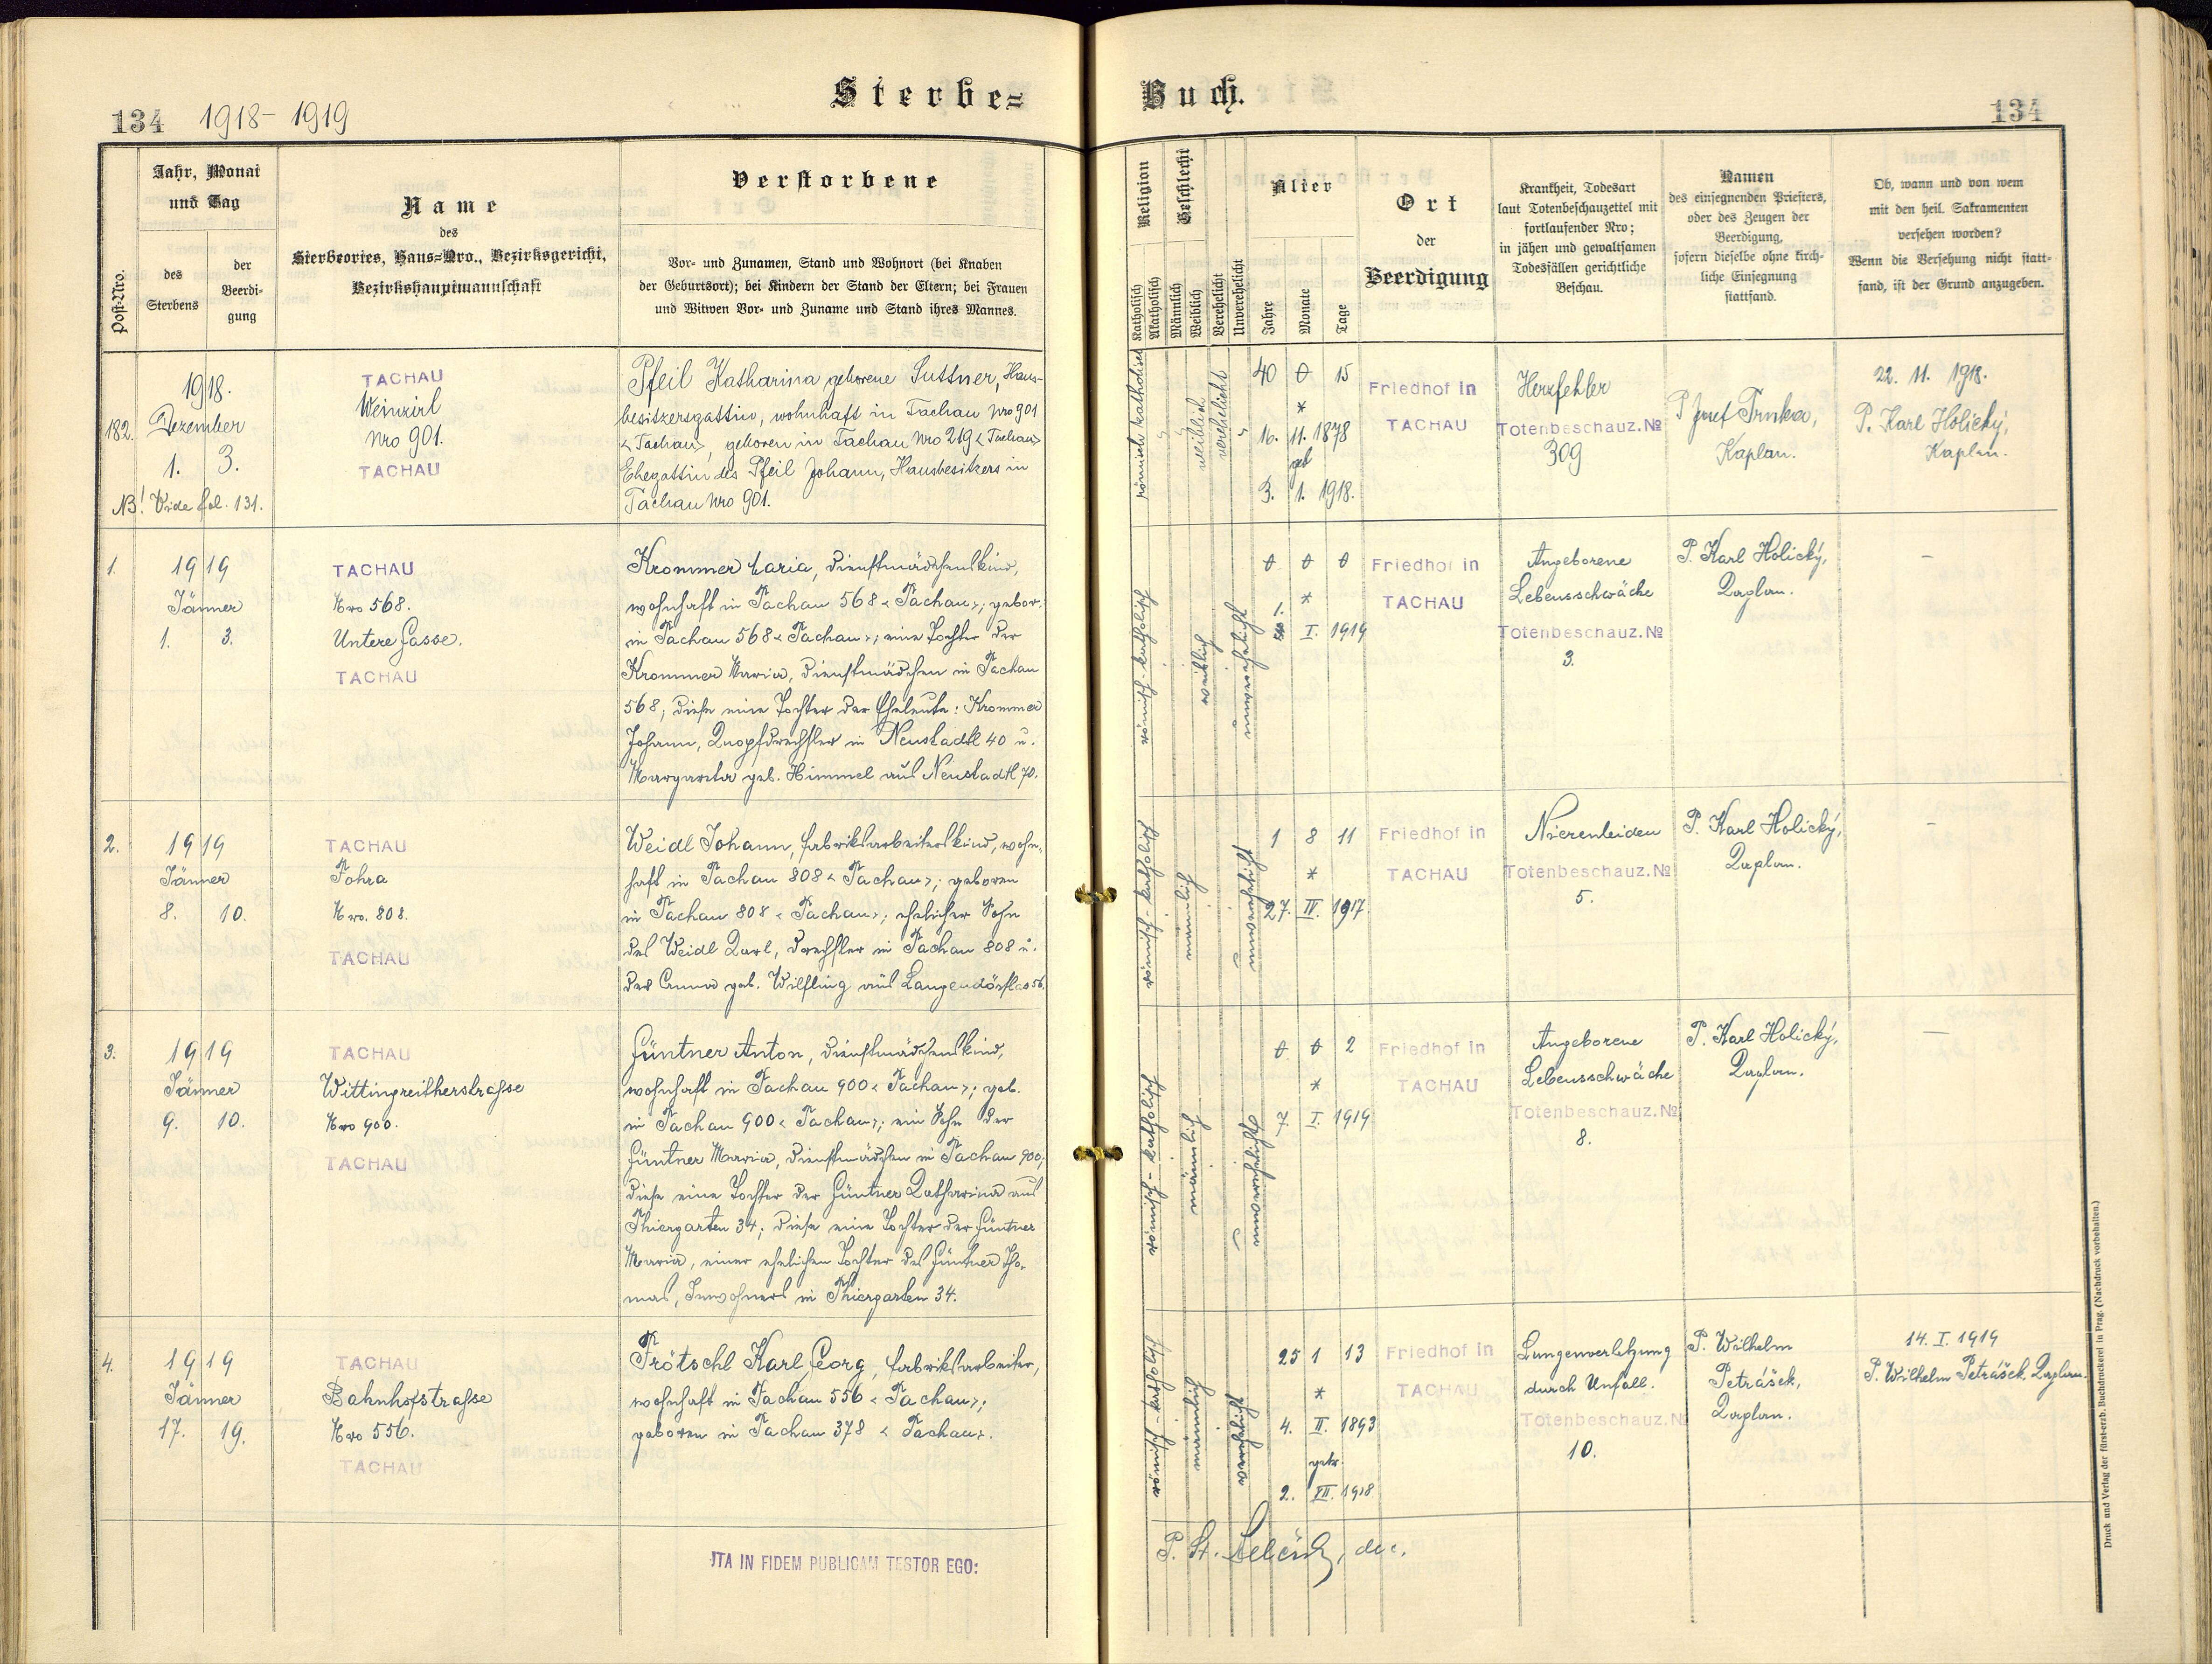 Sterbe=
Buch.
134 1918- 1919
134
Post-Nro.
Jahr, Monat
und Tag
des
Sterbens
der
Beerdi-
gung
Name
des
Sterbeortes, Haus=Nro., Bezirksgericht,
Bezirkshauptmannschaft
Verstorbene
Vor- und Zunamen, Stand und Wohnort (bei Knaben
der Geburtsort); bei Kindern der Stand der Eltern; bei Frauen
und Witwen Vor- und Zuname und Stand ihres Mannes.
Religion
Katholisch
Akatholisch
Geschlecht
Männlich
Weiblich
Verehelicht
Unverehelicht
Alter
Jahre
Monate
Tage
Ort
der
Beerdigung
Krankheit, Todesart
laut Totenbeschauzettel mit
fortlaufender Nro;
in jähen und gewaltsamen
Todesfällen gerichtliche
Beschau.
Namen
des einsegnenden Priesters,
oder des Zeugen der
Beerdigung,
sofern dieselbe ohne kirch-
liche Einsegnung
stattfand.
Ob, wann und von wem
mit den heil. Sakramenten
versehen worden?
Wenn die Versehung nicht statt-
fand, ist der Grund anzugeben.
182.
1918.
Dezember
1. 3.
NB! Vide fol. 131.
TACHAU
Weinzirl
Nro 901.
TACHAU
Pfeil Katharina geborene Suttner, Haus-
besitzersgattin, wohnhaft in Tachau Nro 901
<Tachau>, geboren in Tachau Nro 219 <Tachau>
Ehegattin des Pfeil Johann, Hausbesitzers in
Tachau Nro 901.
römisch katholisch
weiblich
verehelicht
40 0 15
*
16. 11. 1878
get
3. 1. 1918.
Friedhof in
TACHAU
Herzfehler
Totenbeschauz.№
309
P Josef Trnka,
Kaplan.
22. 11. 1918.
P. Karl Holický,
Kaplan.
1.
1919
Jänner
1. 3.
TACHAU
Nro 568.
Untere Gasse.
TACHAU
Krommer Maria, Dienstmädchenskind,
wohnhaft in Tachau 568 <Tachau>; gebor.
in Tachau 568 <Tachau>; eine Tochter der
Krommer Maria, Dienstmädchen in Tachau
568, diese eine Tochter der Eheleute: Krommer
Johann, Knopfdrechsler in Neustadtl 40 u.
Margareta geb. Himmel aus Neustadtl 70.
römisch-katholisch
weiblich
unverehelicht
0 0 0
*
1. I. 1919
Friedhof in
TACHAU
Angeborene
Lebensschwäche
Totenbeschauz.№
3.
P. Karl Holický,
Kaplan.
–
2.
1919
Jänner
8. 10.
TACHAU
Fohra
Nro. 808.
TACHAU
Weidl Johann, Fabriksarbeiterskind, wohn-
haft in Tachau 808 <Tachau>; geboren
in Tachau 808 <Tachau>; ehelicher Sohn
des Weidl Karl, Drechsler in Tachau 808 u.
der Anna geb. Wilfling aus Langendörflas 56.
römisch-katholisch
männlich
unverehelicht
1 8 11
*
27. IV. 1917
Friedhof in
TACHAU
Nierenleiden
Totenbeschauz.№
5.
P. Karl Holický,
Kaplan.
–
3.
1919
Jänner
9. 10.
TACHAU
Wittingreitherstraße
Nro 900.
TACHAU
Güntner Anton, Dienstmädchenskind,
wohnhaft in Tachau 900 <Tachau>; geb.
in Tachau 900 <Tachau>; ein Sohn der
Güntner Maria, Dienstmädchen in Tachau 900;
diese eine Tochter der Güntner Katharina aus
Thiergarten 34; diese eine Tochter der Güntner
Maria, einer ehelichen Tochter des Güntner Tho-
mas, Inwohners in Thiergarten 34.
römisch-katholisch
männlich
unverehelicht
0 0 2
*
7. I. 1919
Friedhof in
TACHAU
Angeborene
Lebensschwäche
Totenbeschauz.№
8.
P. Karl Holický,
Kaplan.
–
4.
1919
Jänner
17. 19.
TACHAU
Bahnhofstraße
Nro 556.
TACHAU
Trötschl Karl Georg, Fabriksarbeiter,
wohnhaft in Tachau 556 <Tachau>;
geboren in Tachau 378 <Tachau>.
römisch-katholisch
männlich
verehelicht
25 1 13
*
4. II. 1893
getr.
2. XII. 1918
Friedhof in
TACHAU
Lungenverletzung
durch Unfall.
Totenbeschauz.№
10.
P. Wilhelm
Petrášek,
Kaplan.
14. I. 1919
P. Wilhelm Petrášek, Kaplan.
ITA IN FIDEM PUBLICAM TESTOR EGO:
P. St.
Druck und Verlag der fürst-erzb. Buchdruckerei in Prag. (Nachdruck vorbehalten.)